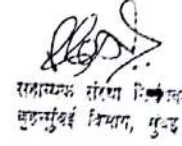 सहाय्यक संस्था निबंधक
बृहन्मुंबई विभाग, मुंबई